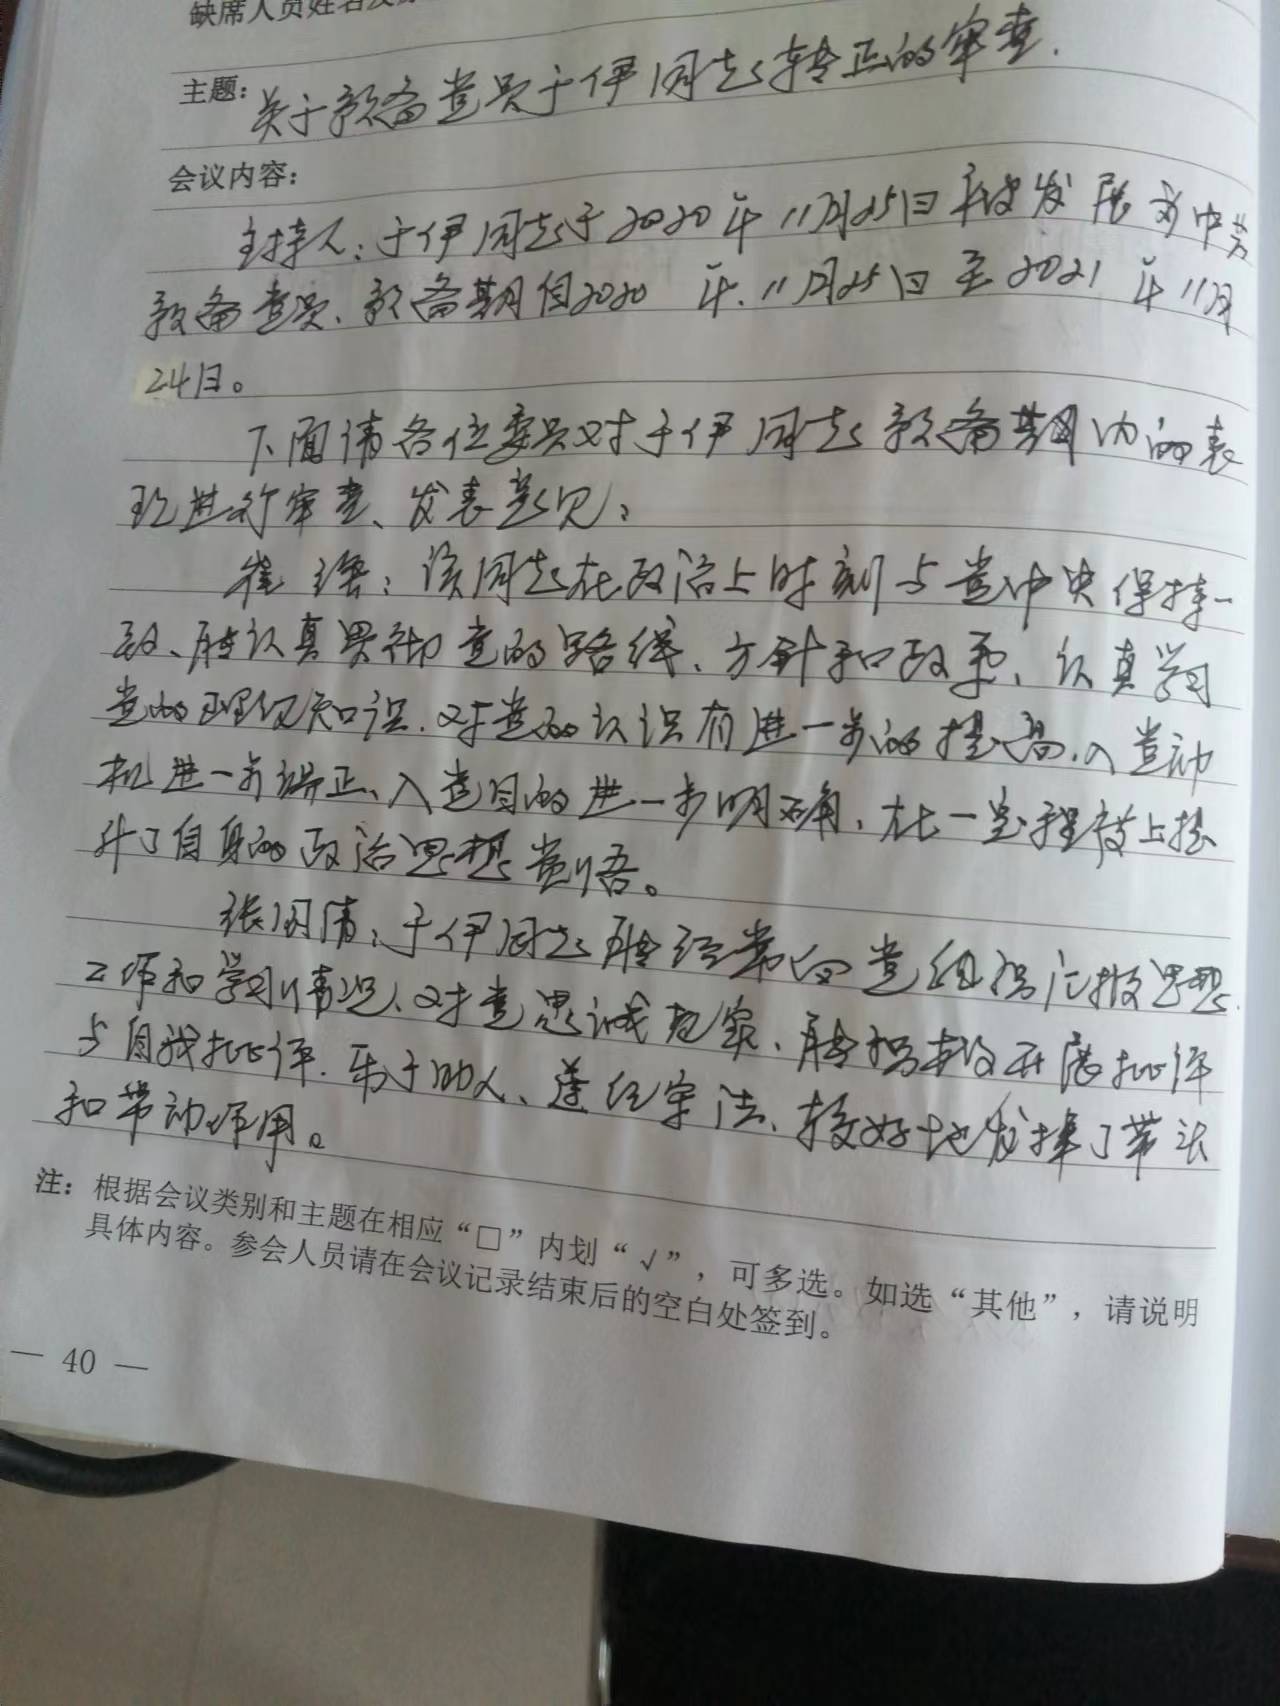 缺席人员姓名及
主题：关于预备党员于伊同志转正的审查.
会议内容：
主持人：于伊同志于2020年11月25日被发展为中共
预备党员、预备期自2020年.11月25日至2021年11月
24日。
下面请各位委员对于伊同志预备期内的表
现进行审查、发表意见：
崔：该同志在政治上时刻与党中央保持一
致、能认真贯彻党的路线、方针和政策、认真学习
党的理论知识.对党的认识有进一步的提高.入党动
机进一步端正、入党目的进一步明确、在一定程度上提
升了自身的政治思想觉悟。
张国清：于伊同志能经常向党组织汇报思想.
工作和学习情况、对党忠诚老实、能积极开展批评
与自我批评.乐于助人、遵纪守法、较好地发挥了带头
和带动作用。
注：根据会议类别和主题在相应“□”内划“√”，可多选。如选“其他”，请说明
具体内容。参会人员请在会议记录结束后的空白处签到。
— 40 —